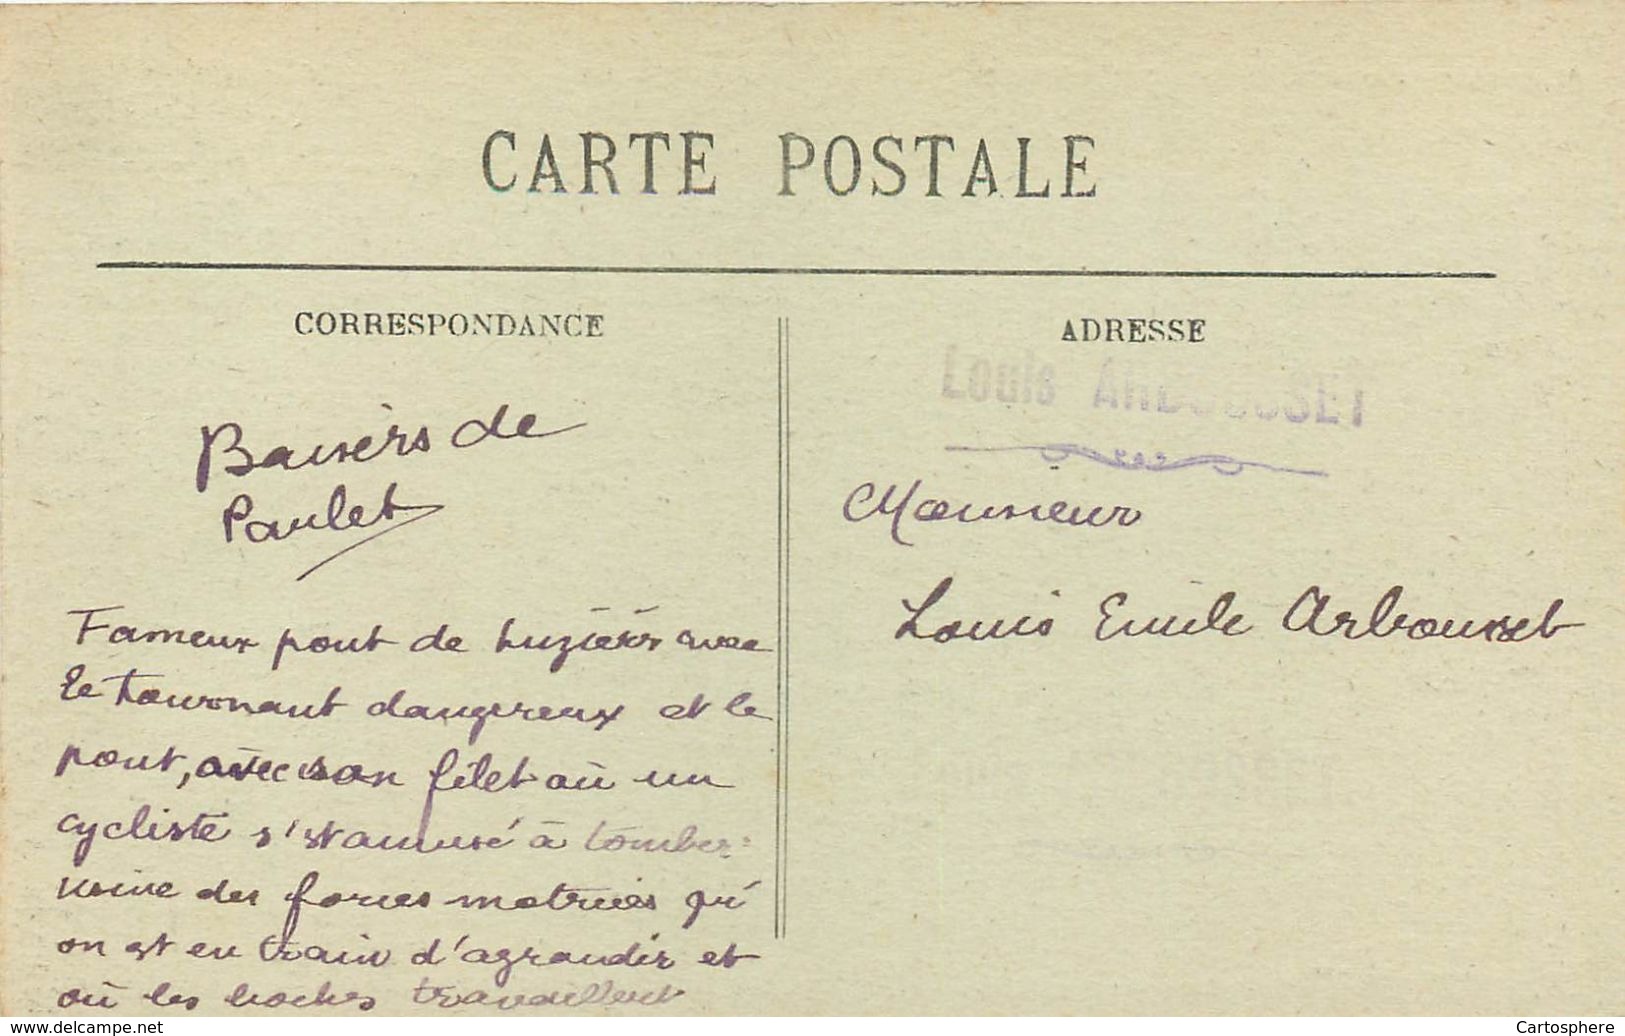 CARTE POSTALE
CORRESPONDANCE
ADRESSE
Louis ARBOUSSET
Baisers de
Paulet
Monsieur
Louis Emile Arbousset
Fameux pont de Luzières avec
le tournant dangereux et le
pont, avec son filet où un
cycliste s'est amusé à tomber:
usine des forces motrices qu'
on est en train d'agrandir et
où les boches travaillent
www.delcampe.net
Cartosphere